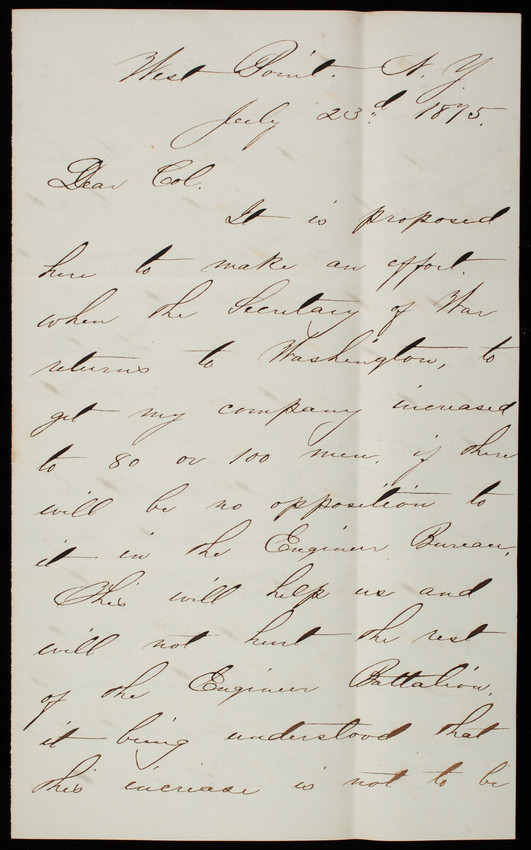 West Point. N. Y.
July 23d 1875.
Dear Col.
It is proposed
here to make an effort.
when the Secretary of War
returns to Washington, to
get my company increased
to 80 or 100 men, if there
will be no opposition to
it in the Engineer Bureau.
This will help us and
will not hurt the rest
of the Engineer Battalion,
it being understood that
this increase is not to be